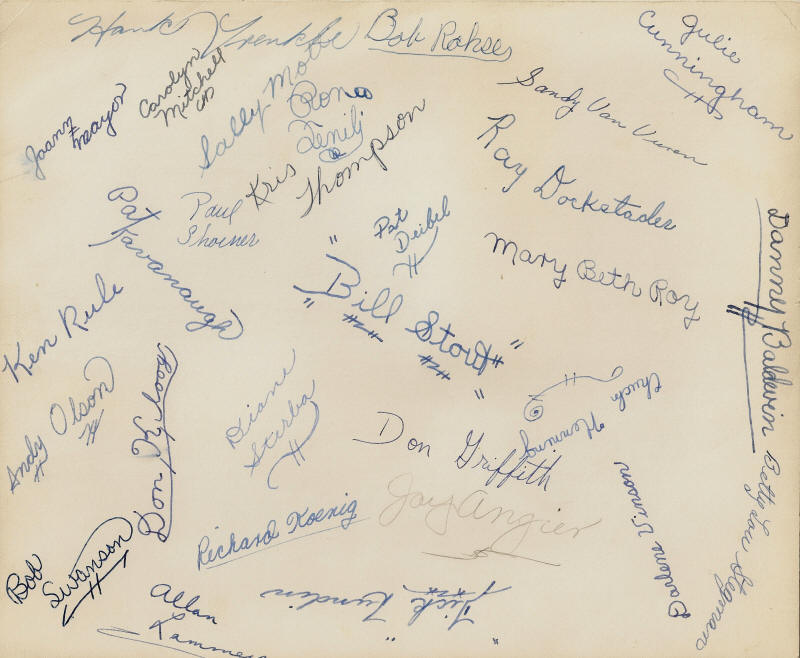 Hank Trenkle
Bob Rohse
Julie
Cunningham
Joann
Mayor
Carolyn
Mitchell
Sally Mote
Rona
Sandy Van Vuren
Kris
Thompson
Ray Dockstader
Paul
Shoener
Pat
Kavanaugh
Pat
Deibel
Mary Beth Roy
Danny Baldwin
"Bill Stout"
Ken Rule
Andy Olson
Don Kilroy
Diane
Stirba
Chuck
Flemming
Don Griffith
Betty Lou Stegman
Darlene Vinson
Richard Koenig
Jay Angier
Bob
Swanson
Allan
"Dick Lundin"